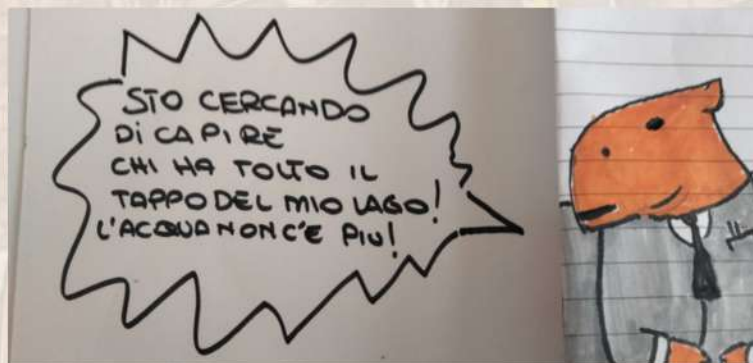 STO CERCANDO
DI CAPIRE
CHI HA TOLTO IL
TAPPO DEL MIO LAGO!
L'ACQUA NON C'E PIU!